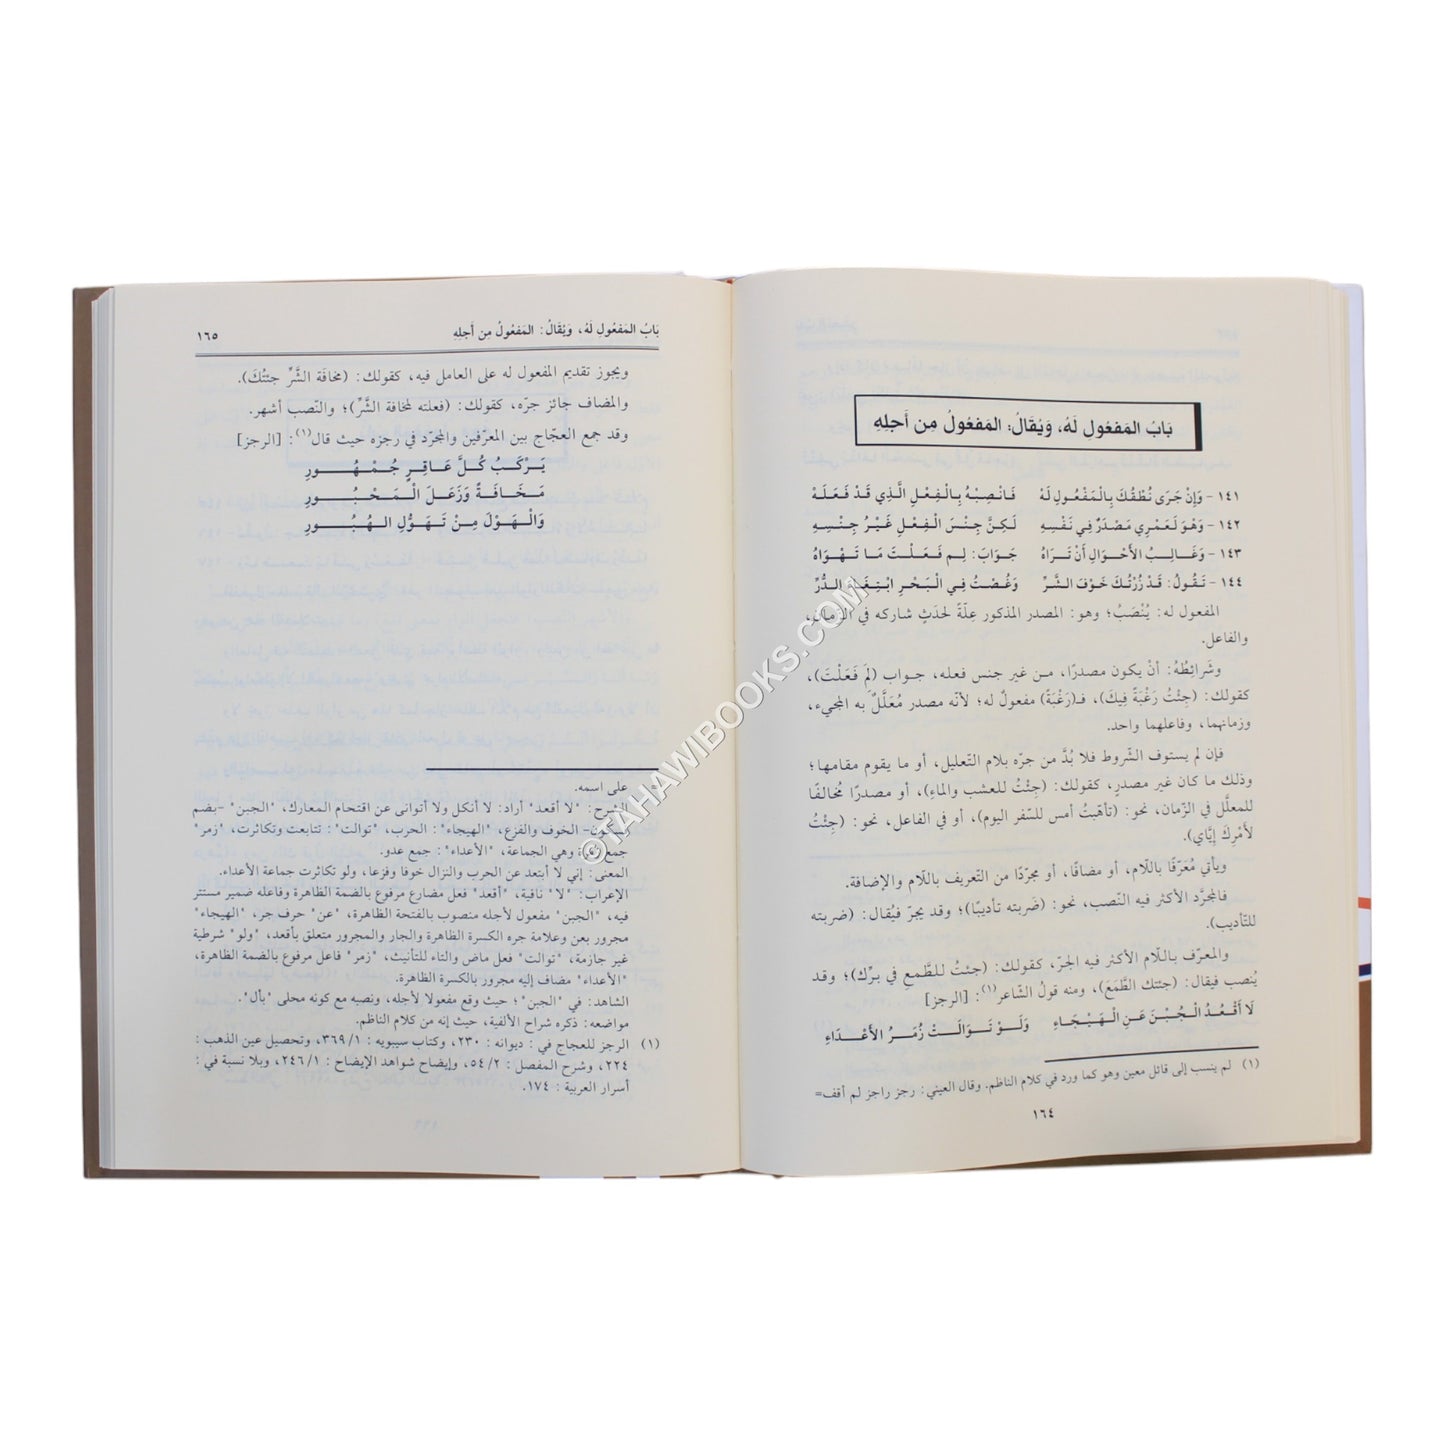 بَابُ المَفعُولِ لَهُ، وَيُقَالُ: المَفعُولُ مِن أَجلِهِ
١٤١ - وَإِنْ جَرَى نُطْقُكَ بِالمَفْعُولِ لَهْ فَانْصِبْهُ بِالْفِعْلِ الَّذِي قَدْ فَعَلَهْ
١٤٢ - وَهْوَ لَعَمْرِي مَصْدَرٌ فِي نَفْسِهِ لَكِنَّ جِنْسَ الْفِعْلِ غَيْرُ جِنْسِهِ
١٤٣ - وَغَالِبُ الأَحْوَالِ أَنْ تَرَاهُ جَوَابَ: لِم فَعَلْتَ مَا تَهْوَاهُ
١٤٤ - تَقُولُ: قَدْ زُرْتُكَ خَوْفَ الشَّرِّ وَغُصْتُ فِي الْبَحْرِ ابْتِغَاءَ الدُّرِّ
المفعول له: يُنْصَبُ؛ وهو: المصدر المذكور عِلّةً لحدَثٍ شاركه في الزمان،
والفاعل.
وشَرائِطُهُ: أنْ يكون مصدرًا، من غير جنس فعله، جواب (لِمَ فَعَلْتَ)،
كقولك: (جِئْتُ رَغْبَةً فِيكَ)، فـ(رَغْبَةً) مفعول له؛ لأنّه مصدر مُعَلَّلٌ به المجيء،
وزمانهما، وفاعلهما واحد.
فإن لم يستوف الشّروط فلا بُدَّ من جرّه بلام التّعليل، أو ما يقوم مقامها؛
وذلك ما كان غير مصدرٍ، كقولك: (جئْتُ للعشب والماءِ)، أو مصدرًا مُخالفًا
للمعلَّل في الزّمان، نحو: (تأهّبتُ أمس للسّفر اليوم)، أو في الفاعل، نحو: (جِئْتُ
لأمْرِكَ إيّاي).
ويأتي مُعَرَّفًا باللّام، أو مضافًا، أو مجرّدًا من التّعريف باللّام والإضافة.
فالمجرَّد الأكثر فيه النّصب، نحو: (ضَربته تأديبًا)؛ وقد يجرّ فيُقال: (ضربته
للتّأديب).
والمعرّف باللّام الأكثر فيه الجرّ، كقولك: (جئتُ للطّمع في برِّك)؛ وقد
يُنصب فيقال: (جئتك الطّمَعَ)، ومنه قولُ الشّاعر(١): [الرجز]
لَا أَقْعُدُ الْجُبْنَ عَنِ الْهَيْجَاءِ وَلَوْ تَوَالَتْ زُمَرُ الأَعْدَاءِ
(١) لم ينسب إلى قائل معين وهو كما ورد في كلام الناظم. وقال العيني: رجز راجز لم أقف=
١٦٤
بَابُ المَفعُولِ لَهُ، وَيُقَالُ: المَفعُولُ مِن أَجلِهِ ١٦٥
ويجوز تقديم المفعول له على العامل فيه، كقولك: (مخافَة الشَّرِّ جئتُكَ).
والمضاف جائز جرّه، كقولك: (فعلته لمخافة الشَّرِّ)؛ والنّصب أشهر.
وقد جمع العجّاج بين المعرّفين والمجرّد في رجزه حيث قال(١): [الرجز]
يَرْكَبُ كُلَّ عَاقِرٍ جُمْهُورِ
مَخَافَةً وَزَعَلَ الْمَحْبُورِ
وَالْهَوْلَ مِنْ تَهَوُّلِ الْهُبُورِ
على اسمه.
الشرح: "لا أقعد" أراد: لا أنكل ولا أتوانى عن اقتحام المعارك، "الجبن" -بضم
فسكون- الخوف والفزع، "الهيجاء": الحرب، "توالت": تتابعت وتكاثرت، "زمر"
جمع زمرة وهي الجماعة، "الأعداء": جمع عدو.
المعنى: إني لا أبتعد عن الحرب والنزال خوفا وفزعا، ولو تكاثرت جماعة الأعداء.
الإعراب: "لا" نافية، "أقعد" فعل مضارع مرفوع بالضمة الظاهرة وفاعله ضمير مستتر
فيه، "الجبن" مفعول لأجله منصوب بالفتحة الظاهرة، "عن" حرف جر، "الهيجاء"
مجرور بعن وعلامة جره الكسرة الظاهرة والجار والمجرور متعلق بأقعد، "ولو" شرطية
غير جازمة، "توالت" فعل ماض والتاء للتأنيث، "زمر" فاعل مرفوع بالضمة الظاهرة،
"الأعداء" مضاف إليه مجرور بالكسرة الظاهرة.
الشاهد: في "الجبن"؛ حيث وقع مفعولا لأجله، ونصبه مع كونه محلى "بأل".
مواضعه: ذكره شراح الألفية، حيث إنه من كلام الناظم.
(١) الرجز للعجاج في: ديوانه: ٢٣٠، وكتاب سيبويه: ٣٦٩/١، وتحصيل عين الذهب:
٢٢٤، وشرح المفصل: ٥٤/٢، وإيضاح شواهد الإيضاح: ٢٤٦/١، وبلا نسبة في:
أسرار العربية: ١٧٤.
©TAHAWIBOOKS.COM